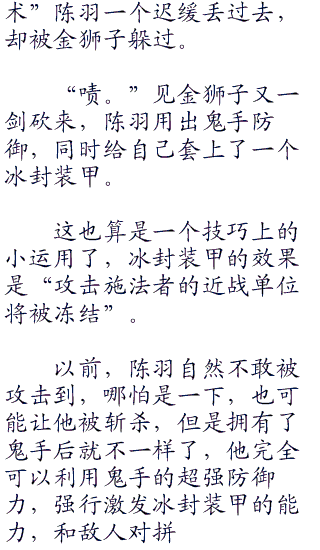 术”陈羽一个迟缓丢过去，
却被金狮子躲过。
“啧。”见金狮子又一
剑砍来，陈羽用出鬼手防
御，同时给自己套上了一个
冰封装甲。
这也算是一个技巧上的
小运用了，冰封装甲的效果
是“攻击施法者的近战单位
将被冻结”。
以前，陈羽自然不敢被
攻击到，哪怕是一下，也可
能让他被斩杀，但是拥有了
鬼手后就不一样了，他完全
可以利用鬼手的超强防御
力，强行激发冰封装甲的能
力，和敌人对拼